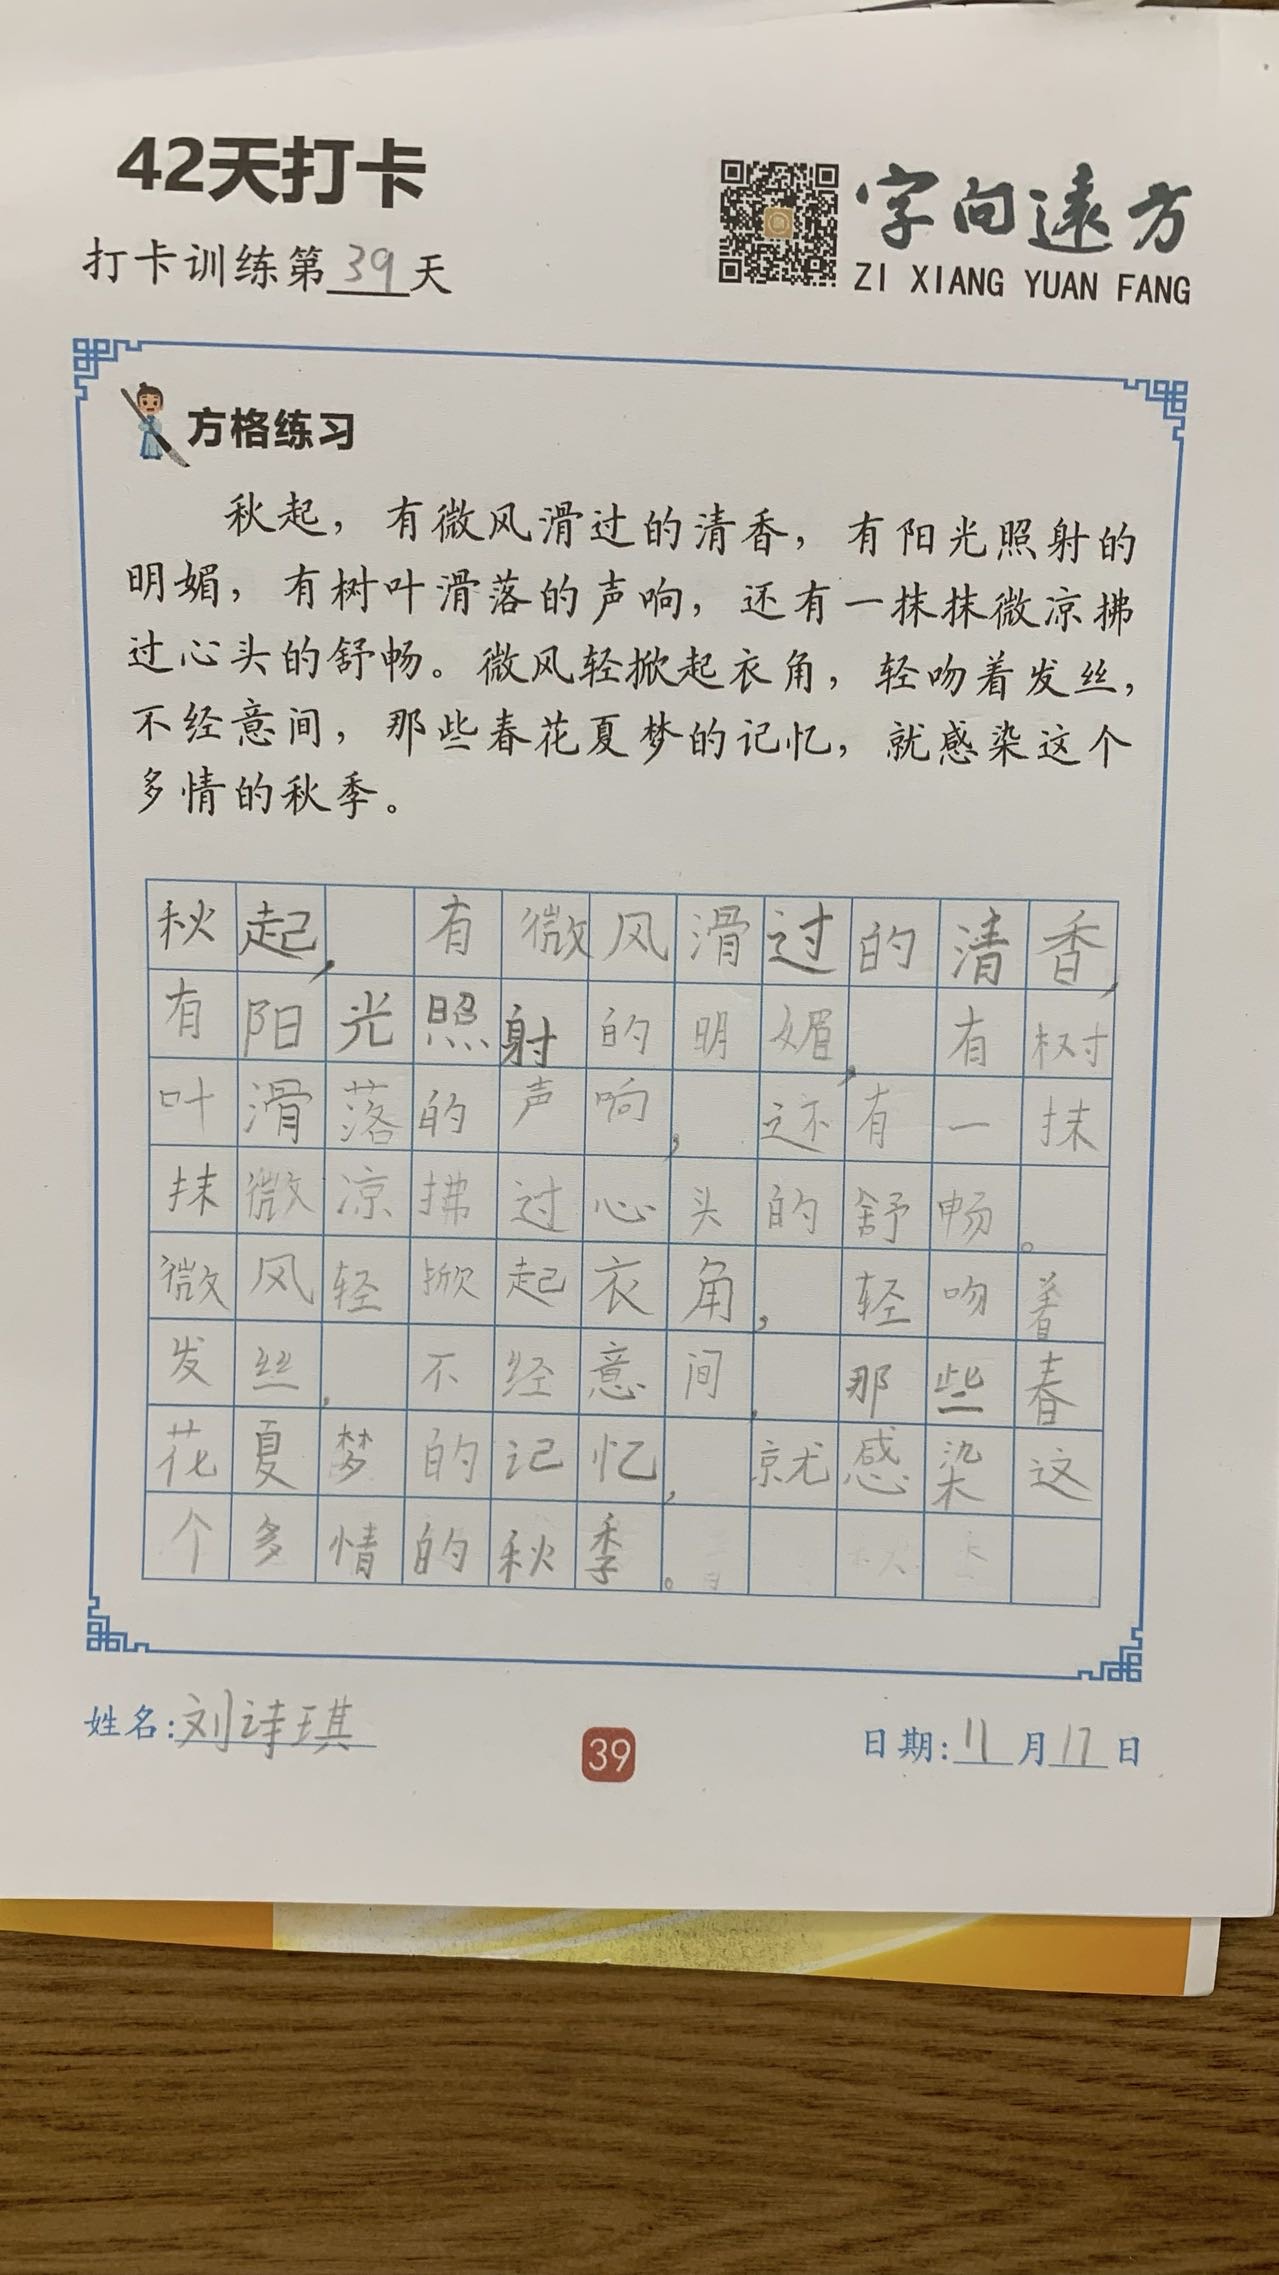 42天打卡
字向遠方
ZI XIANG YUAN FANG
打卡训练第39天
方格练习
秋起，有微风滑过的清香，有阳光照射的
明媚，有树叶滑落的声响，还有一抹抹微凉拂
过心头的舒畅。微风轻掀起衣角，轻吻着发丝，
不经意间，那些春花夏梦的记忆，就感染这个
多情的秋季。
秋起，有微风滑过的清香，
有阳光照射的明媚，有树
叶滑落的声响，还有一抹
抹微凉拂过心头的舒畅。
微风轻掀起衣角，轻吻着
发丝，不经意间，那些春
花夏梦的记忆，就感染这
个多情的秋季。
姓名:刘诗琪
39
日期:11月17日